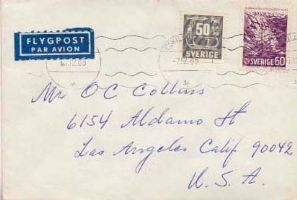 FLYGPOST
PAR AVION
50
SVERIGE
SVERIGE 60
Mr OC Collins
6154 Aldama St
Los Angeles Calif 90042
U.S.A.